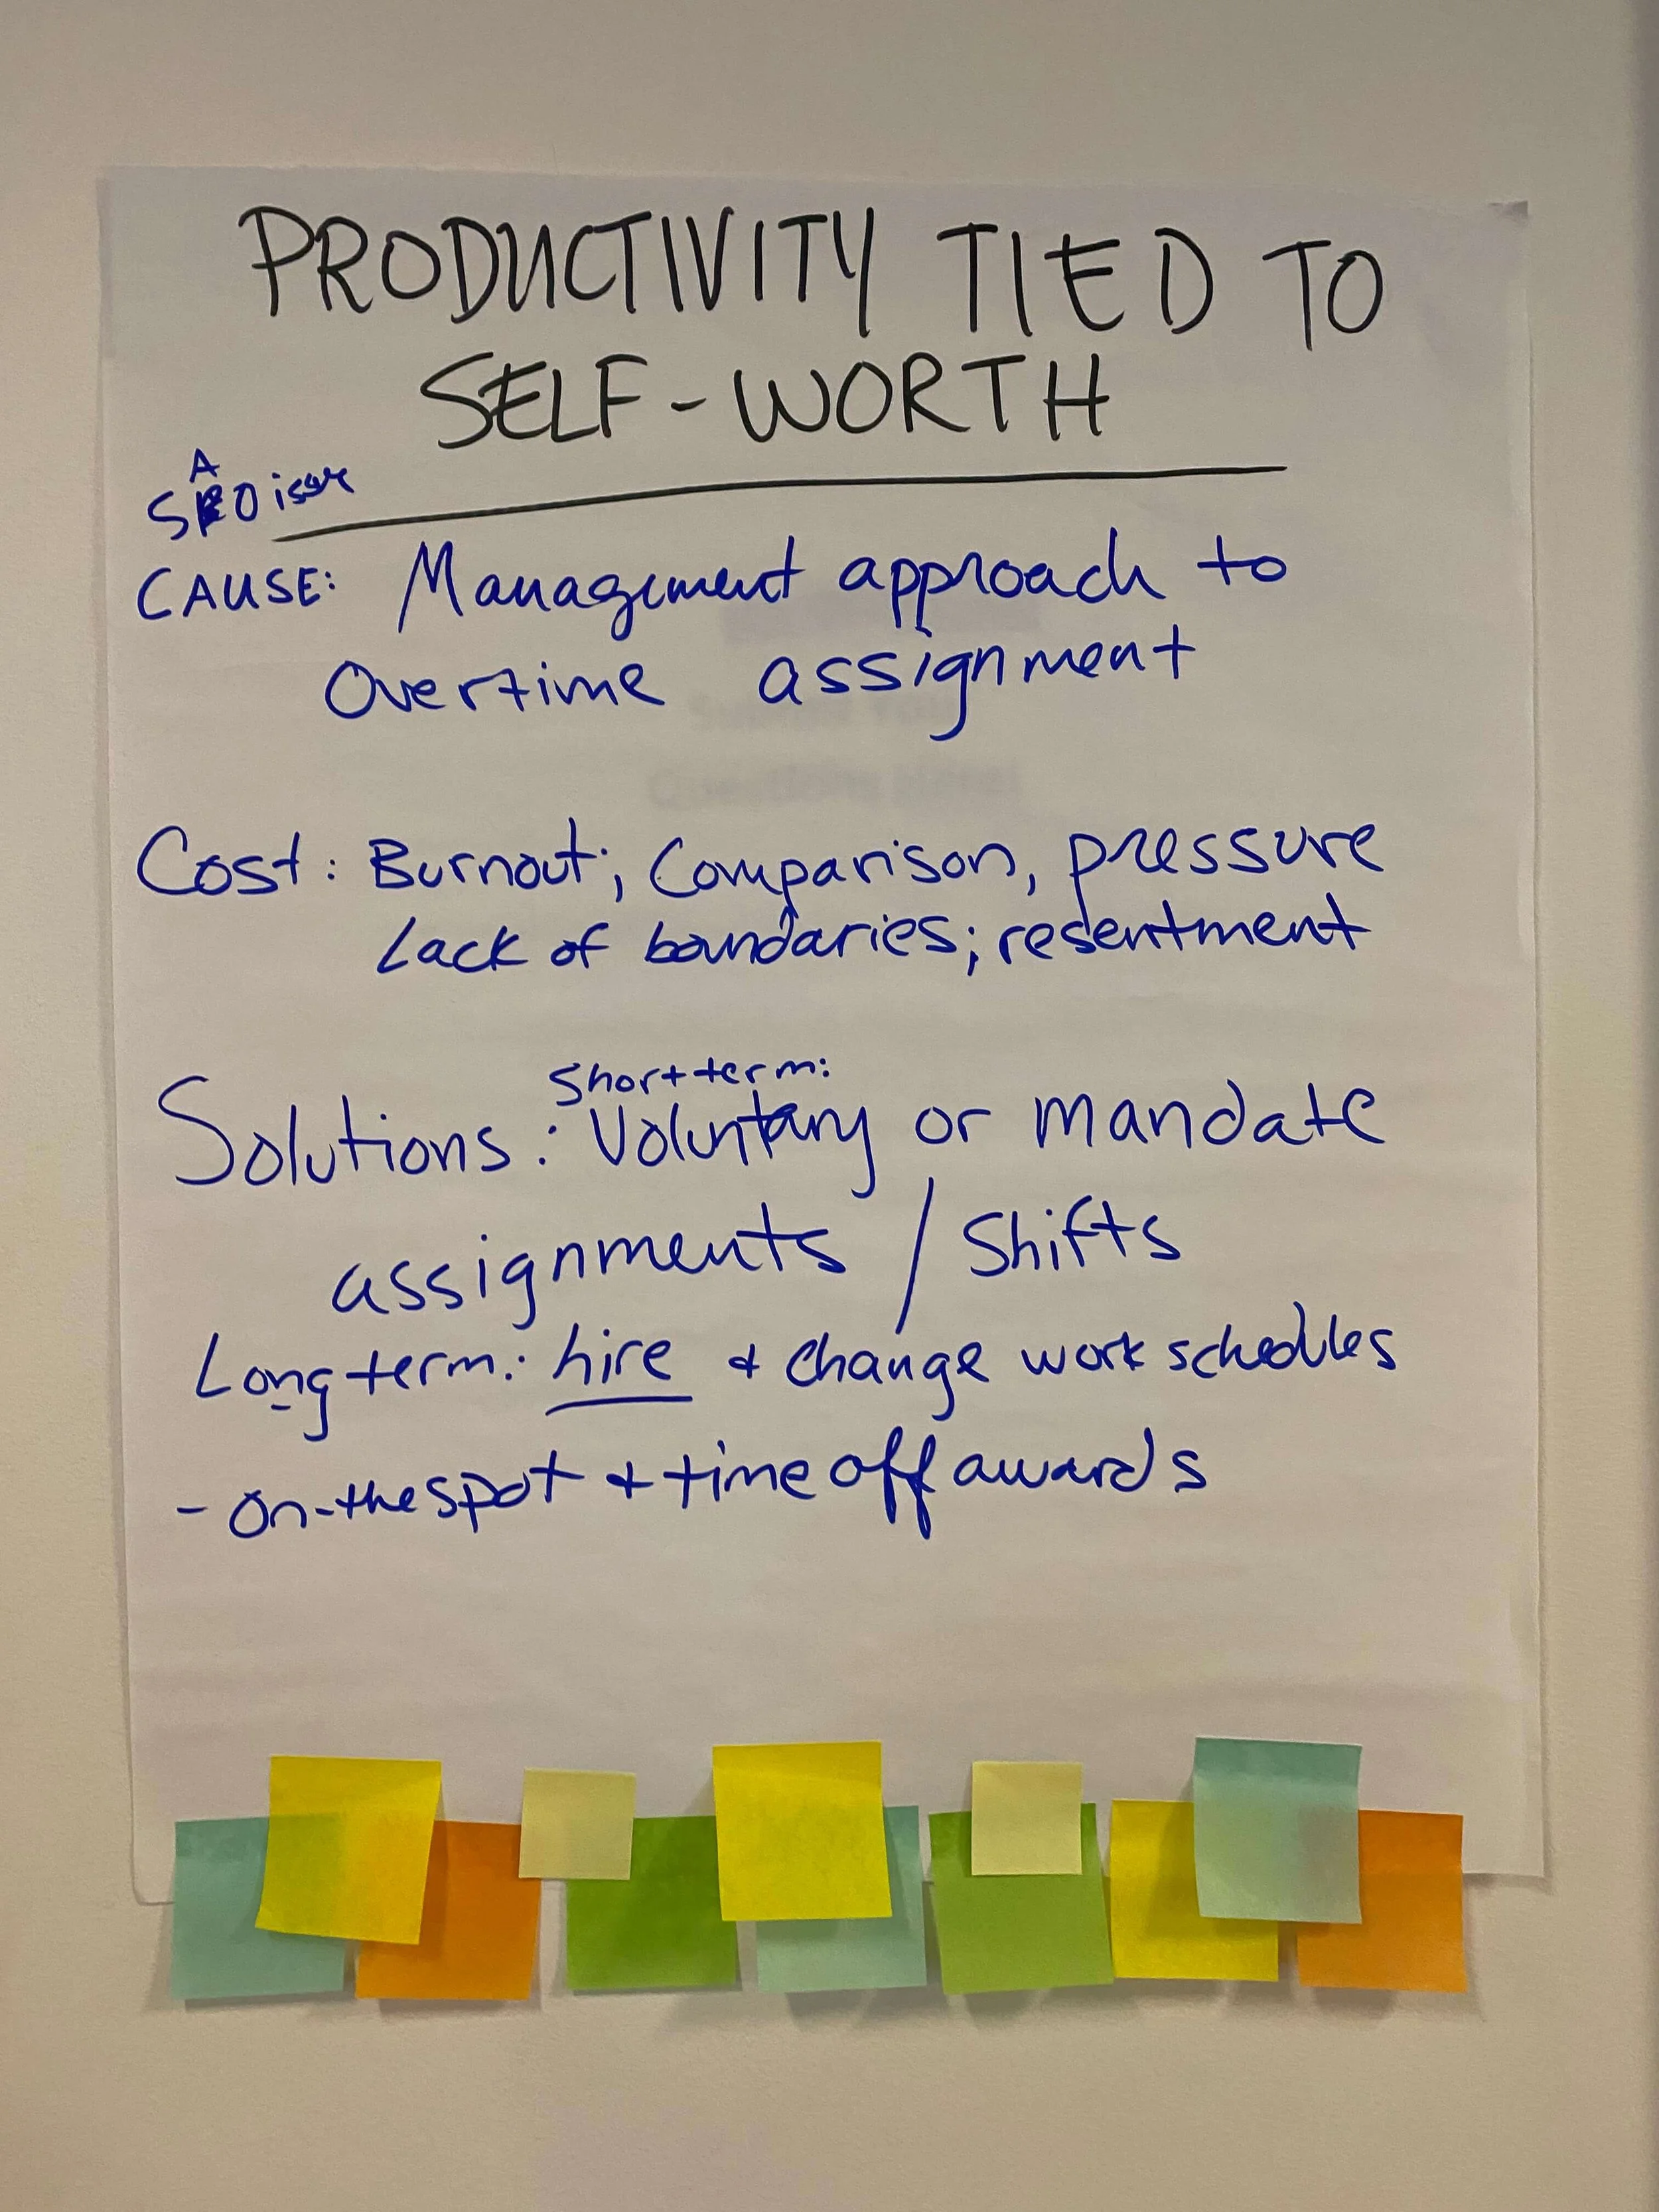 PRODUCTIVITY TIED TO
SELF-WORTH
SAO issue
CAUSE: Management approach to
Overtime assignment
Cost: Burnout; Comparison, pressure
Lack of boundaries; resentment
Short term:
Solutions: Voluntary or mandate
assignments / Shifts
Long term: hire & change work schedules
- On-the spot & time off awards